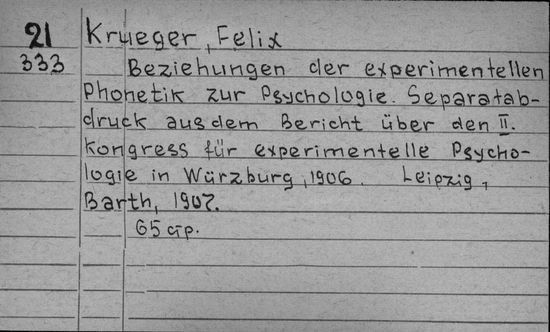 21 Krueger, Felix
333 Beziehungen der experimentellen
Phonetik zur Psychologie. Separatab-
druck aus dem Bericht über den II.
Kongress für experimentelle Psycho-
logie in Würzburg, 1906. Leipzig,
Barth, 1907.
65 стр.